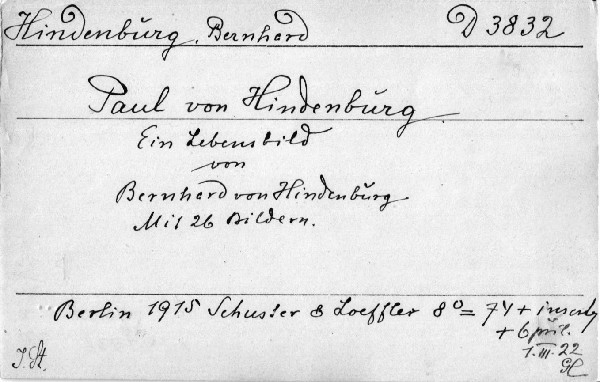 Hindenburg, Bernhard D 3832
Paul von Hindenburg
Ein Lebensbild
von
Bernhard von Hindenburg
Mit 26 Bildern.
Berlin 1915 Schuster & Loeffler 8° = 74 +
+ 6 příl.
1.III.22
J. St.